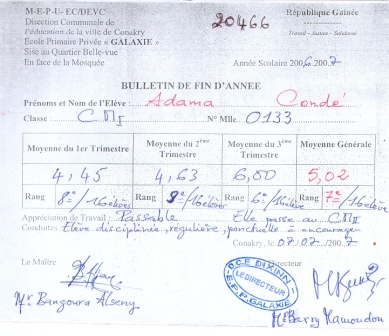 M-E-P-U- EC/DEVC 20466 République Guinée
Direction Communale de Travail - Justice - Solidarité
l'éducation de la ville de Conakry
Ecole Primaire Privée « GALAXIE »
Sise au Quartier Belle-vue Année Scolaire 2006.2007
En face de la Mosquée
BULLETIN DE FIN D'ANNEE
Prénoms et Nom de l'Elève : Adama Condé
Classe : CMI N° Mlle. 0133
Moyenne du 1er Trimestre Moyenne du 2ème Trimestre Moyenne du 3ème Trimestre Moyenne Générale
4,45 4,63 6,00 5,02
Rang 8e/16élèves Rang 9e/16élèves Rang 6e/16élève Rang 7e/16élève
Appréciation de Travail : Passable Elle passe au CMII
Conduites Elève disciplinée, régulière, ponctuelle à encourager
Conakry, le 07/07/2007
Le Maître Directeur
D.C.E DIXINN
LE DIRECTEUR
E.P.P GALAXIE
Mr Bangoura Alseny Mr Barry Mamoudou